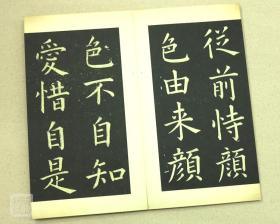 從前恃顔
色由来顔
色不自知
愛惜自是